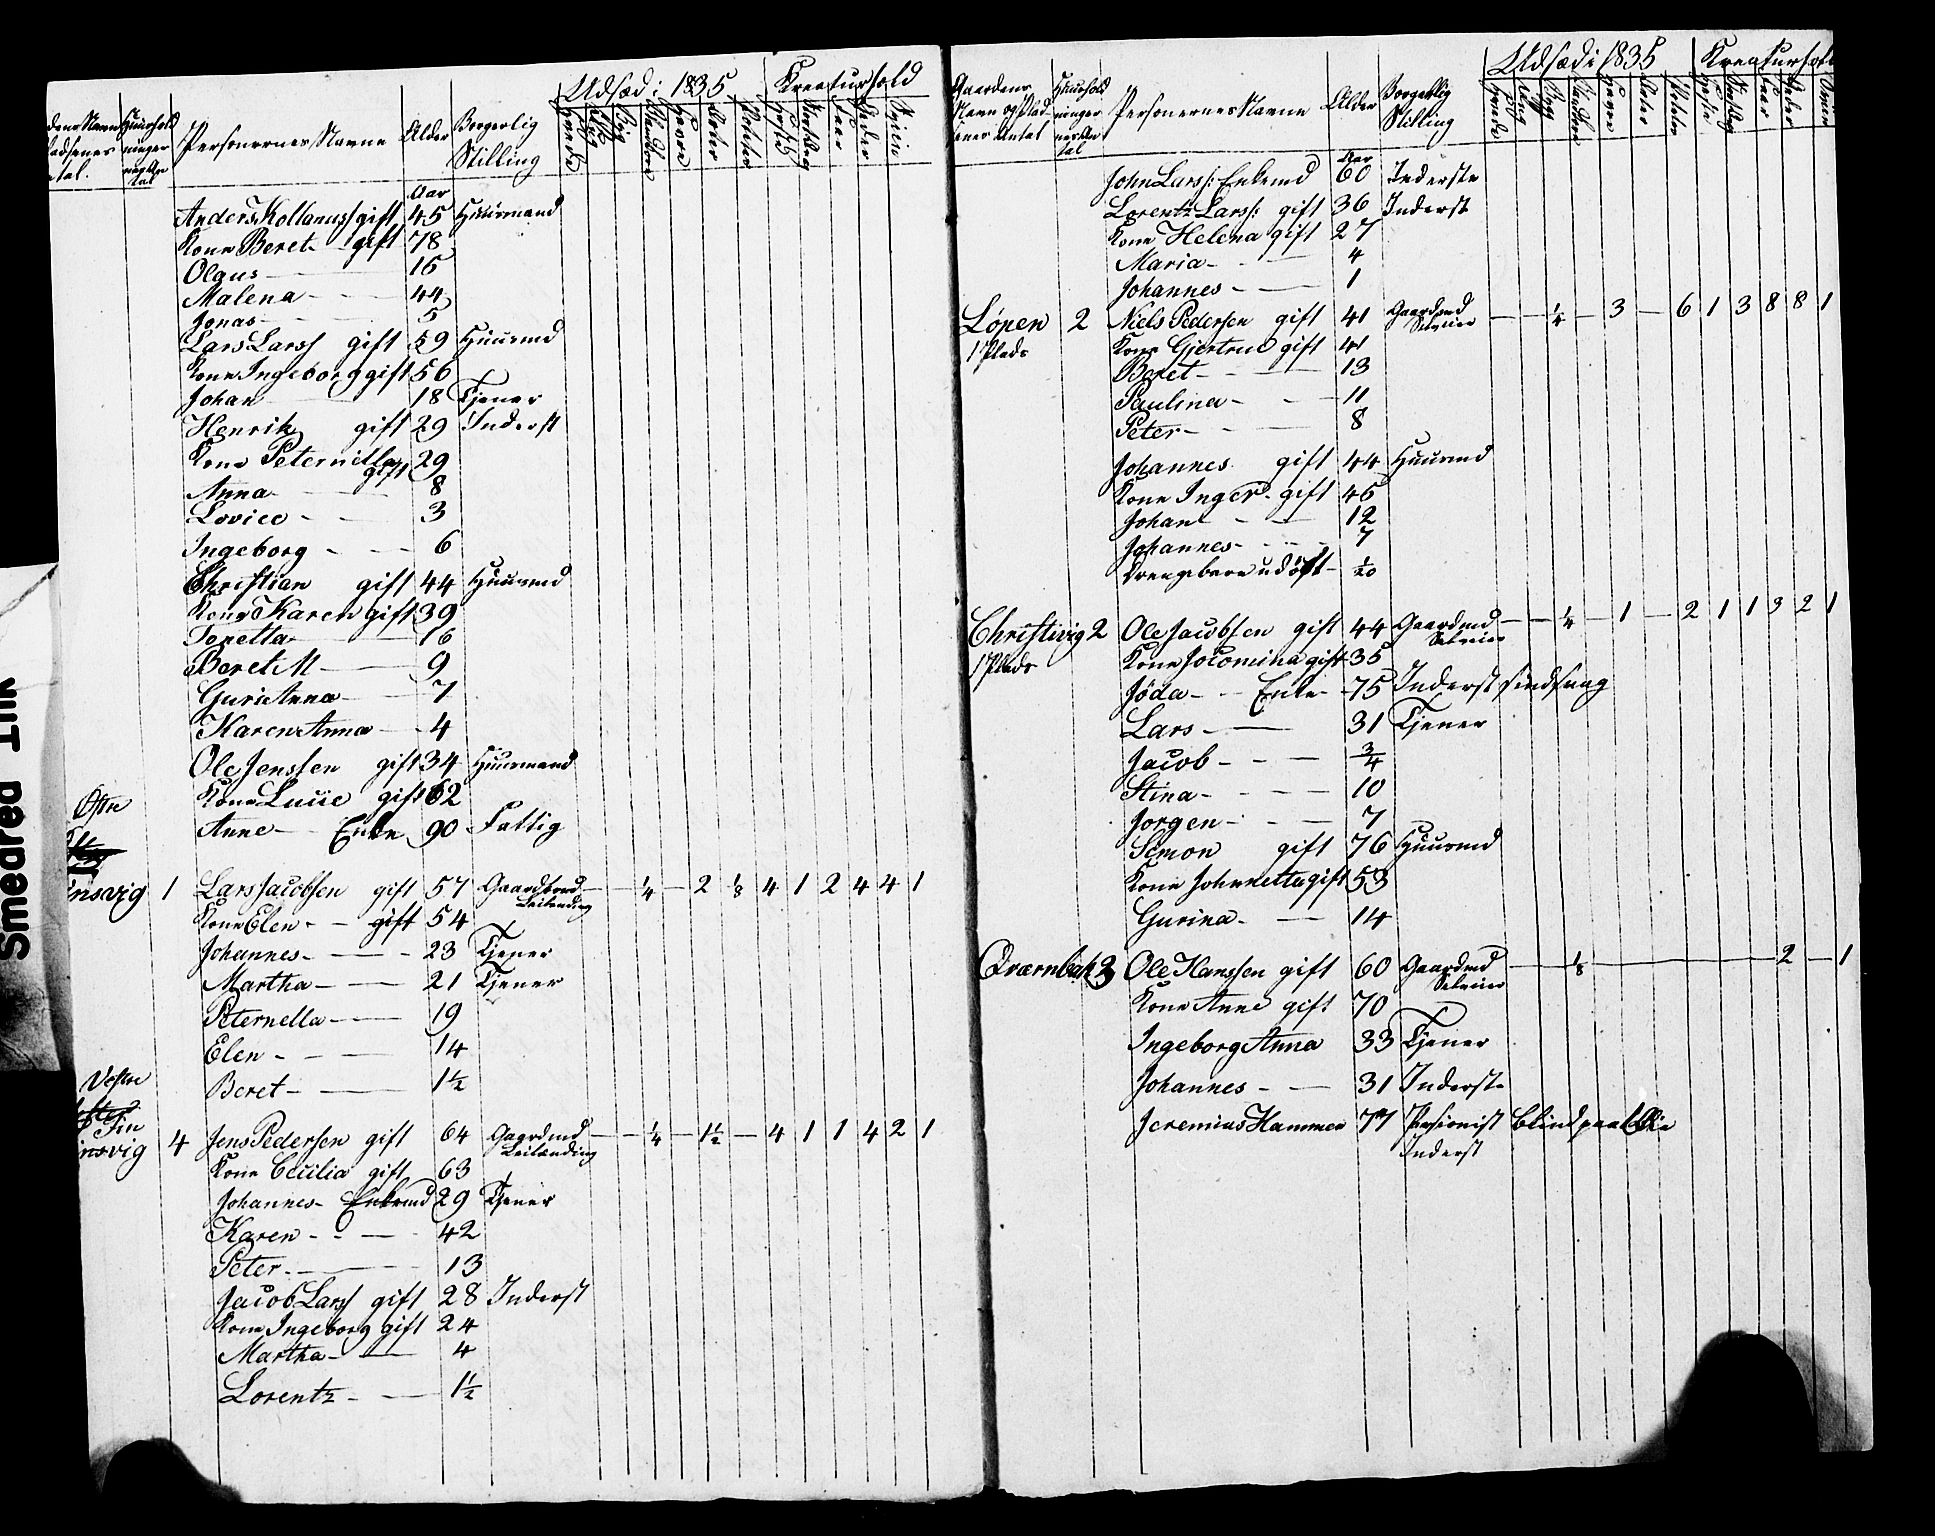 Udsæd i 1835 Kreaturhold
Personernes Navne Alder Borgerlig Stilling
Aar
Anders Kollanuss gift 45 Huusmand
Kone Beret gift 78
Olaus 15
Malena 44
Jonas 5
Lars Larss gift 59 Huusmd
Kone Ingeborg gift 56
Johan 18 Tjener
Henrik gift 29 Inderst
Kone Peternilla gift 29
Anna 8
Lovice 3
Ingeborg 6
Christian gift 44 Huusmd
Kone Karen gift 39
Tonetta 16
Beret M 9
Guri Anna 7
Karen Anna 4
Ole Jenssen gift 34 Huusmand
Kone Lucie gift 62
Anne Enke 90 Fattig
Østre
insvig 1 Lars Jacobsen gift 57 Gaardbrd Leilending — ¼ — 2 ⅛ 4 1 2 4 4 1
Kone Elen gift 54
Johannes 23 Tjener
Martha 21 Tjener
Peternella 19
Elen 14
Beret 1½
Vestre
Fin
insvig 4 Jens Pedersen gift 64 Gaardmd Leilending — ¼ — 1½ — 4 1 1 4 2 1
Kone Cecilia gift 63
Johannes Enkemd 29 Tjener
Karen 42
Peter 13
Jacob Larss gift 28 Inderst
Kone Ingeborg gift 24
Martha 4
Lorentz 1½
Udsæd i 1835 Kreaturhold
Gaardenes Navn og Pladsenes Antal Huusholdningernes Antal Personernes Navne Alder Borgerlig Stilling
Aar
John Larss: Enkemd 60 Inderste
Lorentz Larss: gift 36 Inderst
Kone Helena gift 27
Maria 4
Johannes 1
Lónen 2 Niels Pedersen gift 41 Gaardmd Selveier — ¼ — 3 — 6 1 3 8 8 1
1 Plads Kone Gjertrud gift 41
Beret 13
Paulina 11
Peter 8
Johannes gift 44 Huusmd
Kone Inger gift 45
Johan 12
Johannes 7
Drengebarn udøbt 1/20
Christivig 2 Ole Jacobsen gift 44 Gaardmd Selveier — ¼ — 1 — 2 1 1 3 2 1
1 Plads Kone Jocomina gift 35
Jøda Enke 75 Inderst sindsvag
Lars 31 Tjener
Jacob ¾
Stina 10
Jorgen 7
Simon gift 76 Huusmd
Kone Johnnetta gift 53
Gurina 14
Qværnbak 3 Ole Hanssen gift 60 Gaardmd Selveier — ⅛ — 2 — 1
Kone Anne gift 70
Ingeborg Anna 33 Tjener
Johannes 31 Inderste
Jeremias Hammer 77 Pensionist blind paa
Inderst
Smedred